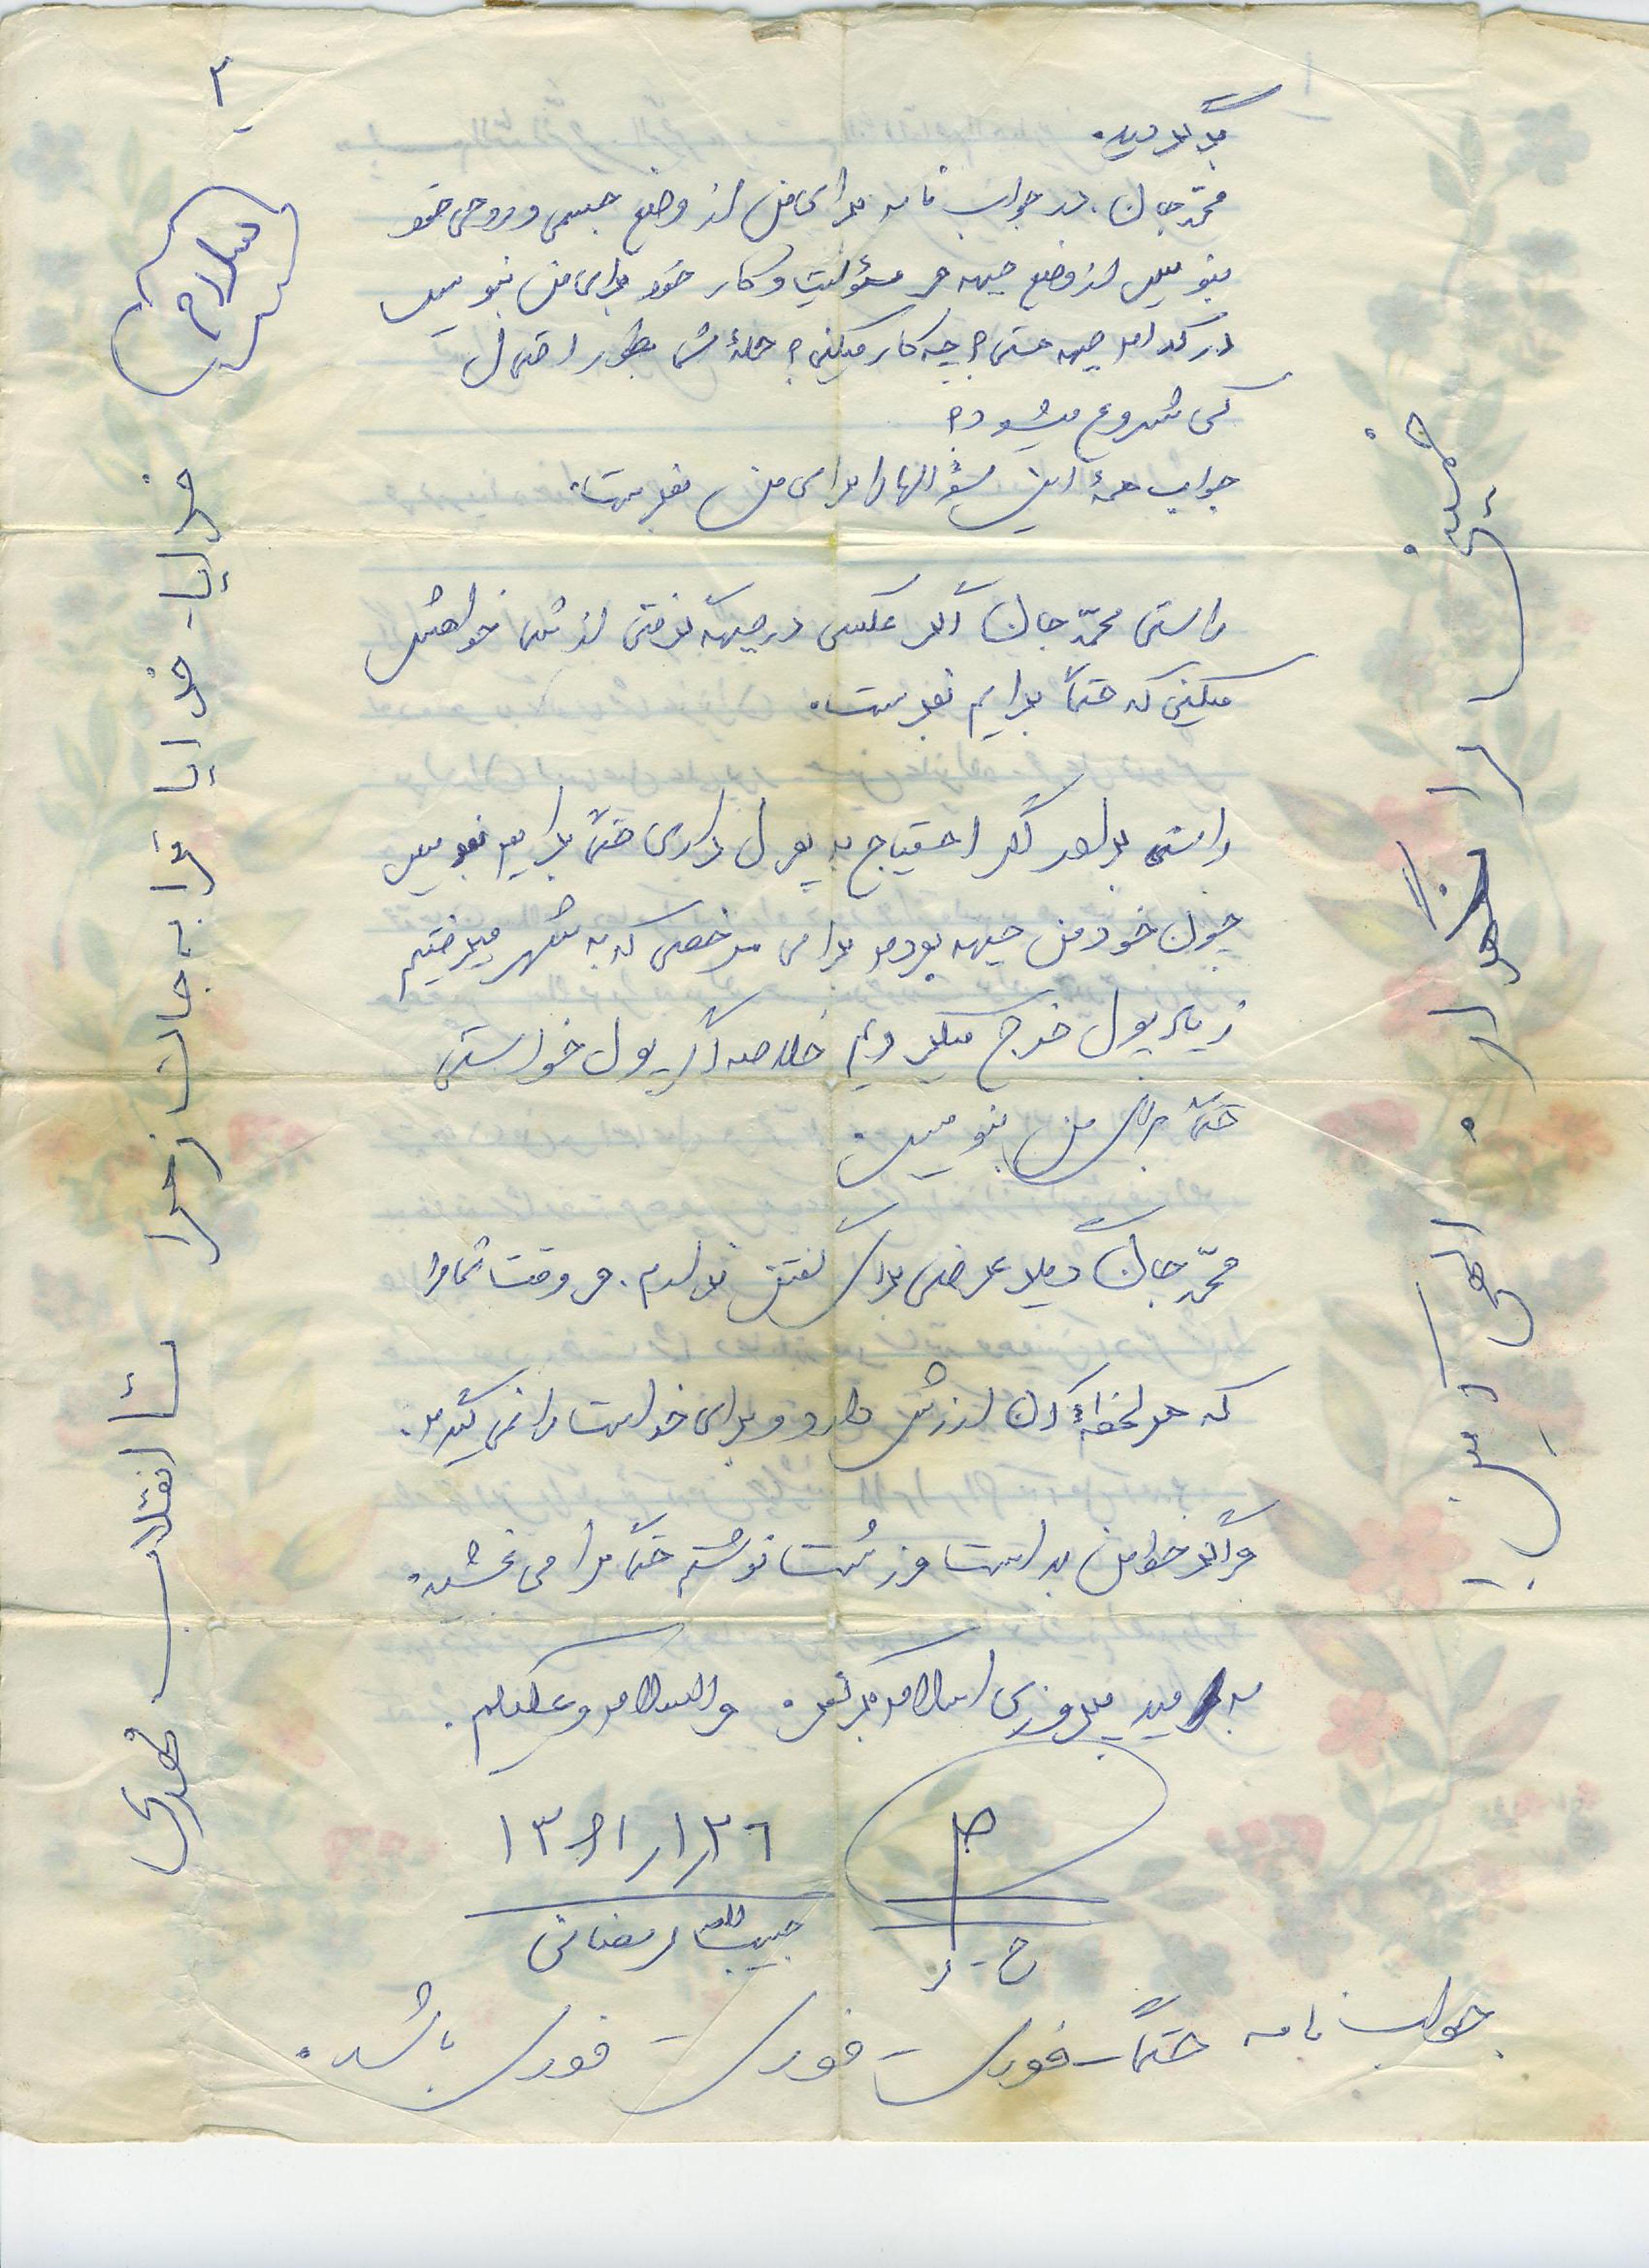 ۲
سلام
برگردید.
محمّد جان. در جواب نامه برای من از وضع جسمی و روحی خود
بنویس از وضع جبهه و مسئولیت و کار خود برای من بنویس
در کدام جبهه هستی؟ چه کار میکنی؟ حملهٔ شما بطور احتمال
کی شروع میشود؟
جواب همهٔ این سؤالها را برای من بفرست.
راستی محمّد جان اگر عکسی در جبهه گرفتی از شما خواهش
میکنم که حتماً برایم بفرست.
راستی برادر اگر احتیاج به پول داری حتماً برایم بنویس
چون خود من جبهه بودم برای مرخصی که به شهر میرفتیم
زیاد پول خرج میکردیم خلاصه اگر پول خواستی
حتماً برای من بنویس.
محمّد جان دیگر عرضی برای گفتن ندارم. و وقت شما را
که هر لحظهٔ آن ارزش دارد و برای خداست را نمی گیرم.
و اگر جواب من بد است و زشت نوشتم حتماً مرا می بخشید.
به امید پیروزی اسلام بر کفر. والسلام و علیکم.
۱۳۶۱/۱/۲۶
حبیب الله رمضانی
ح - ر
جواب نامه حتماً - فوری - فوری - فوری باشد.
خدایا - خدایا ترا بجان زهرا تا انقلاب مهدی
خمینی را نگهدار. الهی آمین!